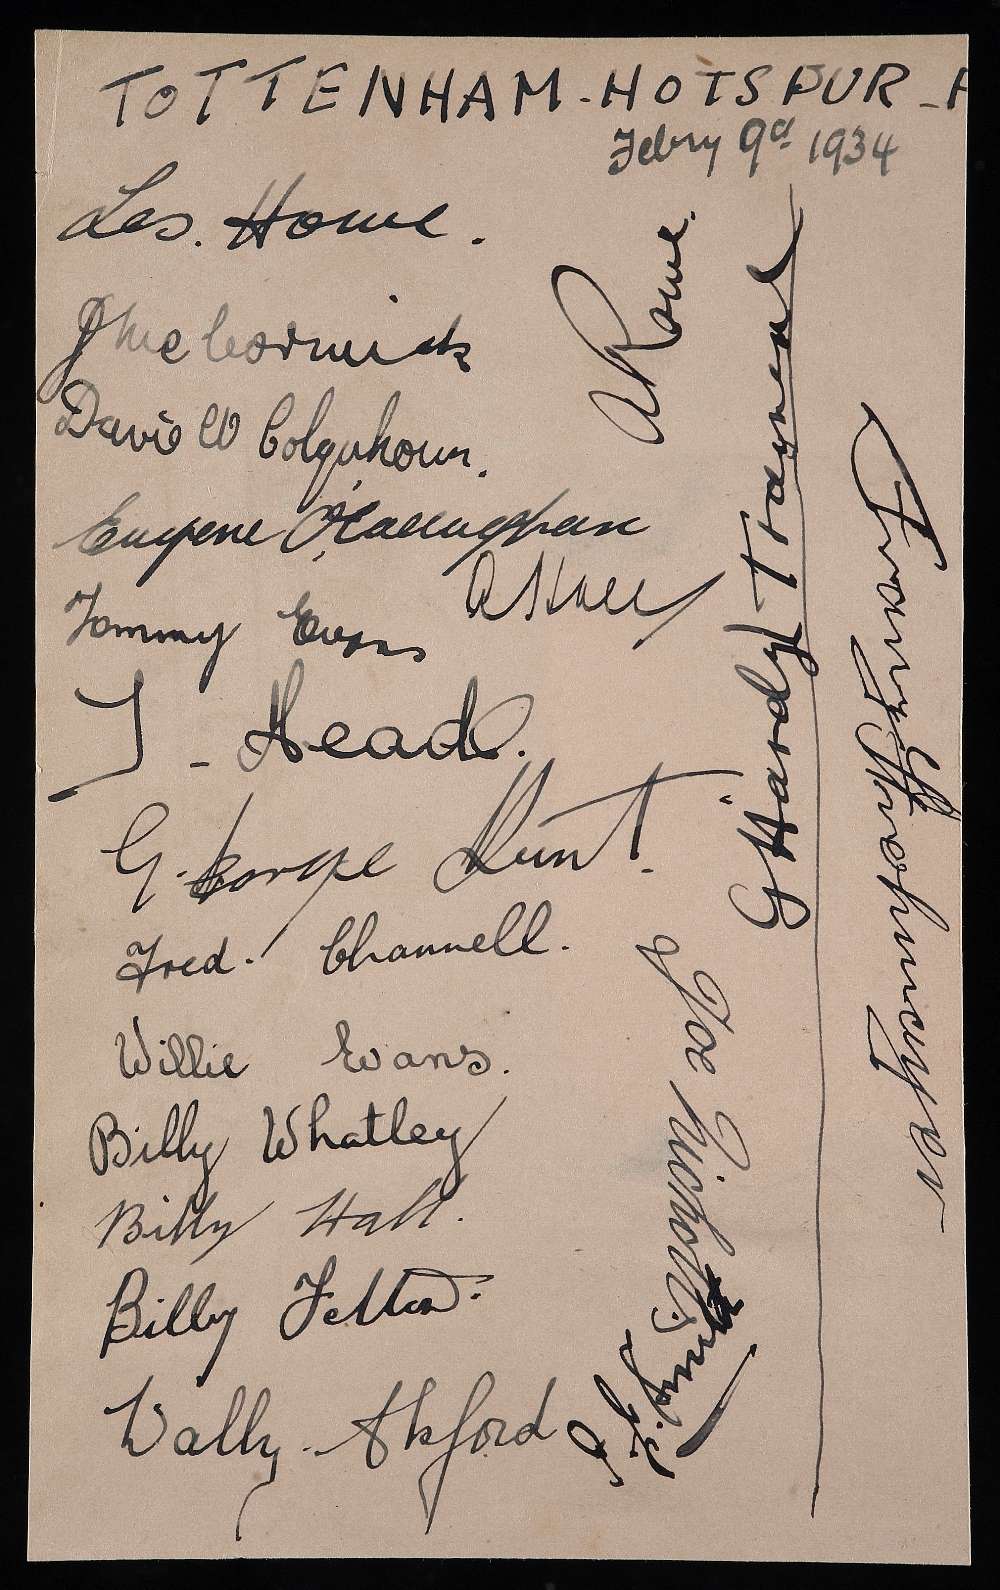 TOTTENHAM-HOTSPUR-
Febry 9d 1934
Les. Howe.
J McCormick
David W Colquhoun.
Eugene O'Callaghan
A Hall
Tommy Evans
T - Head.
G. George Hunt.
Fred. Channell.
Willie Evans.
Billy Whatley
Billy Hall.
Billy Felton.
Wally. Akford
A Rowe.
G Hardy Trainer
Joe Nicholls
Smith
Percy Smith